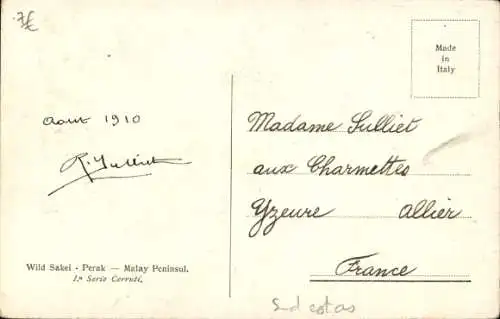 Made
in
Italy
Août 1910
Madame Sulliet
aux Charmettes
Yzeure Allier
France
Wild Sakei - Perak — Malay Peninsul.
1ª Serie Cerruti.